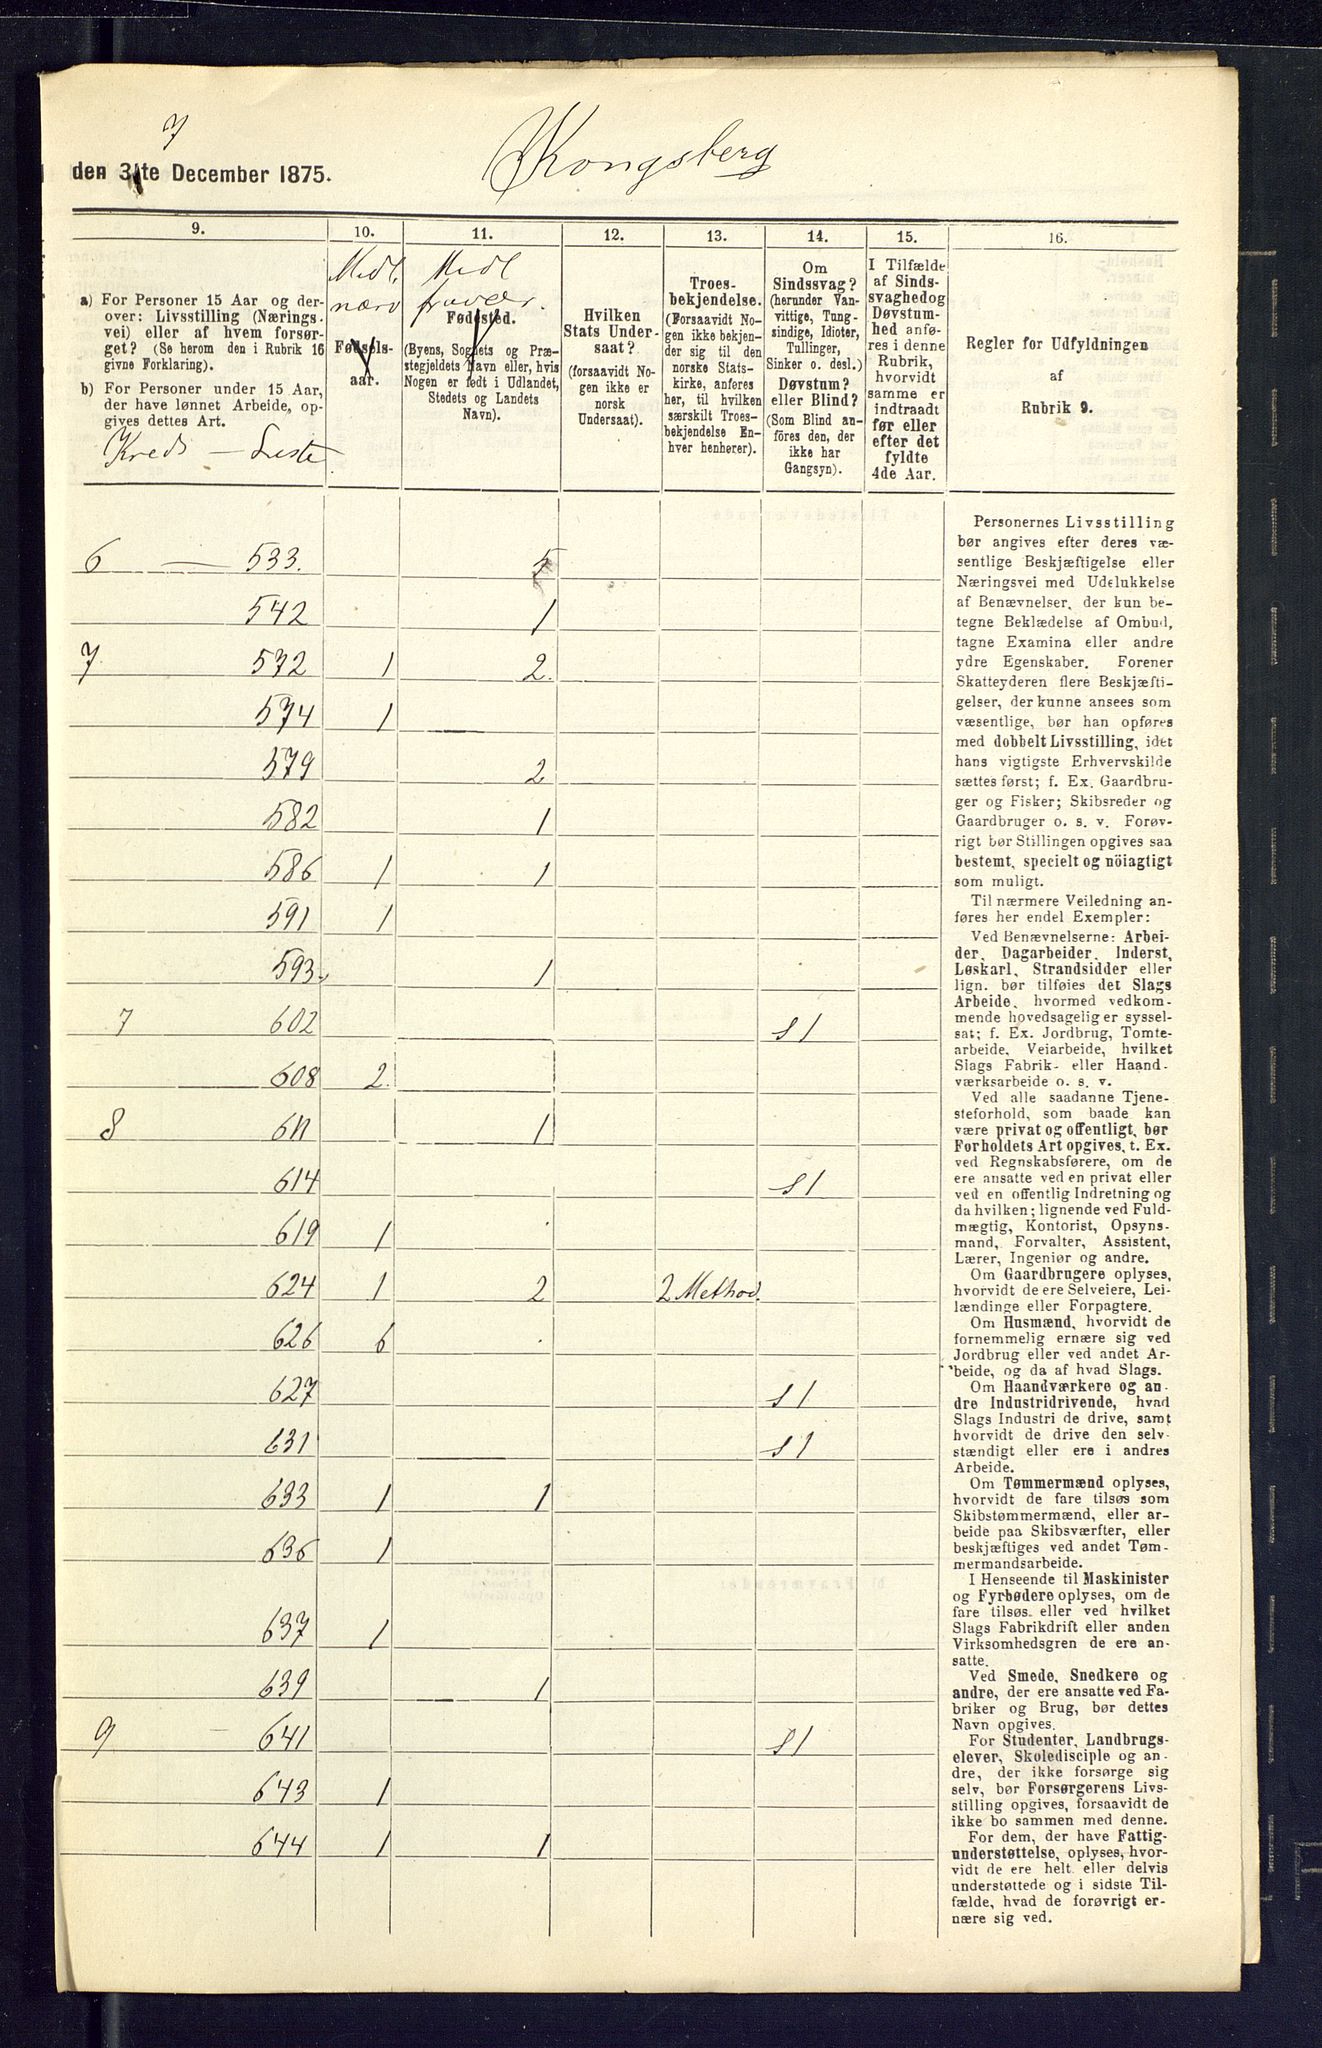 7
Kongsberg
den 31te December 1875.
9.
10.
11.
12.
13.
14.
15.
16.
a) For Personer 15 Aar og der-
over: Livsstilling (Nærings-
vei) eller af hvem forsør-
get? (Se herom den i Rubrik 16
givne Forklaring).
b) For Personer under 15 Aar,
der have lønnet Arbeide, op-
gives dettes Art.
Kreds — Liste
Midl.
nærv
Fødsels-
aar.
Midl
fravær.
Fødested.
(Byens, Sognets og Præ-
stegjeldets Navn eller, hvis
Nogen er født i Udlandet,
Stedets og Landets
Navn).
Hvilken
Stats Under-
saat?
(forsaavidt No-
gen ikke er
norsk
Undersaat).
Troes-
bekjendelse.
(Forsaavidt No-
gen ikke bekjen-
der sig til den
norske Stats-
kirke, anføres
her, til hvilken
særskilt Troes-
bekjendelse En-
hver henhører).
Om
Sindssvag?
(herunder Van-
vittige, Tung-
sindige, Idioter,
Tullinger,
Sinker o. desl.)
Døvstum?
eller Blind?
(Som Blind an-
föres den, der
ikke har
Gangsyn).
I Tilfælde
af Sinds-
svaghed og
Døvstum-
hed anfø-
res i denne
Rubrik,
hvorvidt
samme er
indtraadt
før eller
efter det
fyldte
4de Aar.
Regler for Udfyldningen
af
Rubrik 9.
6 — 533. 5
542 1
7 572 1 2.
574 1
579 2
582 1
586 1 1
591 1
593. 1
7 602 S1
608 2.
8 611 1
614 S1
619 1
624 1 2 2 Method.
626 6
627 S1
631 S1
633 1 1
636 1
637 1
639 1
9 — 641 S1
643 1
644 1 1
Personernes Livsstilling
bør angives efter deres væ-
sentlige Beskjæftigelse eller
Næringsvei med Udelukkelse
af Benævnelser, der kun be-
tegne Beklædelse af Ombud,
tagne Examina eller andre
ydre Egenskaber. Forener
Skatteyderen flere Beskjæfti-
gelser, der kunne ansees som
væsentlige, bør han opføres
med dobbelt Livsstilling, idet
hans vigtigste Erhvervskilde
sættes først; f. Ex. Gaardbru-
ger og Fisker; Skibsreder og
Gaardbruger o. s. v. Forøv-
rigt bør Stillingen opgives saa
bestemt, specielt og nöiagtigt
som muligt.
Til nærmere Veiledning an-
føres her endel Exempler:
Ved Benævnelserne: Arbei-
der, Dagarbeider, Inderst,
Løskarl, Strandsidder eller
lign. bør tilføies det Slags
Arbeide, hvormed vedkom-
mende hovedsagelig er syssel-
sat; f. Ex. Jordbrug, Tomte-
arbeide, Veiarbeide, hvilket
Slags Fabrik- eller Haand-
værksarbeide o. s. v.
Ved alle saadanne Tjene-
steforhold, som baade kan
være privat og offentligt, bør
Forholdets Art opgives, t. Ex.
ved Regnskabsførere, om de
ere ansatte ved en privat eller
ved en offentlig Indretning og
da hvilken; lignende ved Fuld-
mægtig, Kontorist, Opsyns-
mand, Forvalter, Assistent,
Lærer, Ingeniør og andre.
Om Gaardbrugere oplyses,
hvorvidt de ere Selveiere, Lei-
lændinge eller Forpagtere.
Om Husmænd, hvorvidt de
fornemmelig ernære sig ved
Jordbrug eller ved andet Ar-
beide, og da af hvad Slags.
Om Haandværkere og an-
dre Industridrivende, hvad
Slags Industri de drive, samt
hvorvidt de drive den selv-
stændigt eller ere i andres
Arbeide.
Om Tømmermænd oplyses,
hvorvidt de fare tilsøs som
Skibstømmermænd, eller ar-
beide paa Skibsværfter, eller
beskjæftiges ved andet Tøm-
mermandsarbeide.
I Henseende til Maskinister
og Fyrbødere oplyses, om de
fare tilsøs eller ved hvilket
Slags Fabrikdrift eller anden
Virksomhedsgren de ere an-
satte.
Ved Smede, Snedkere og
andre, der ere ansatte ved Fa-
briker og Brug, bør dettes
Navn opgives.
For Studenter, Landbrugs-
elever, Skoledisciple og an-
dre, der ikke forsørge sig
selv, bør Forsørgerens Livs-
stilling opgives, forsaavidt de
ikke bo sammen med denne.
For dem, der have Fattig-
understøttelse, oplyses, hvor-
vidt de ere helt eller delvis
understøttede og i sidste Til-
fælde, hvad de forøvrigt er-
nære sig ved.